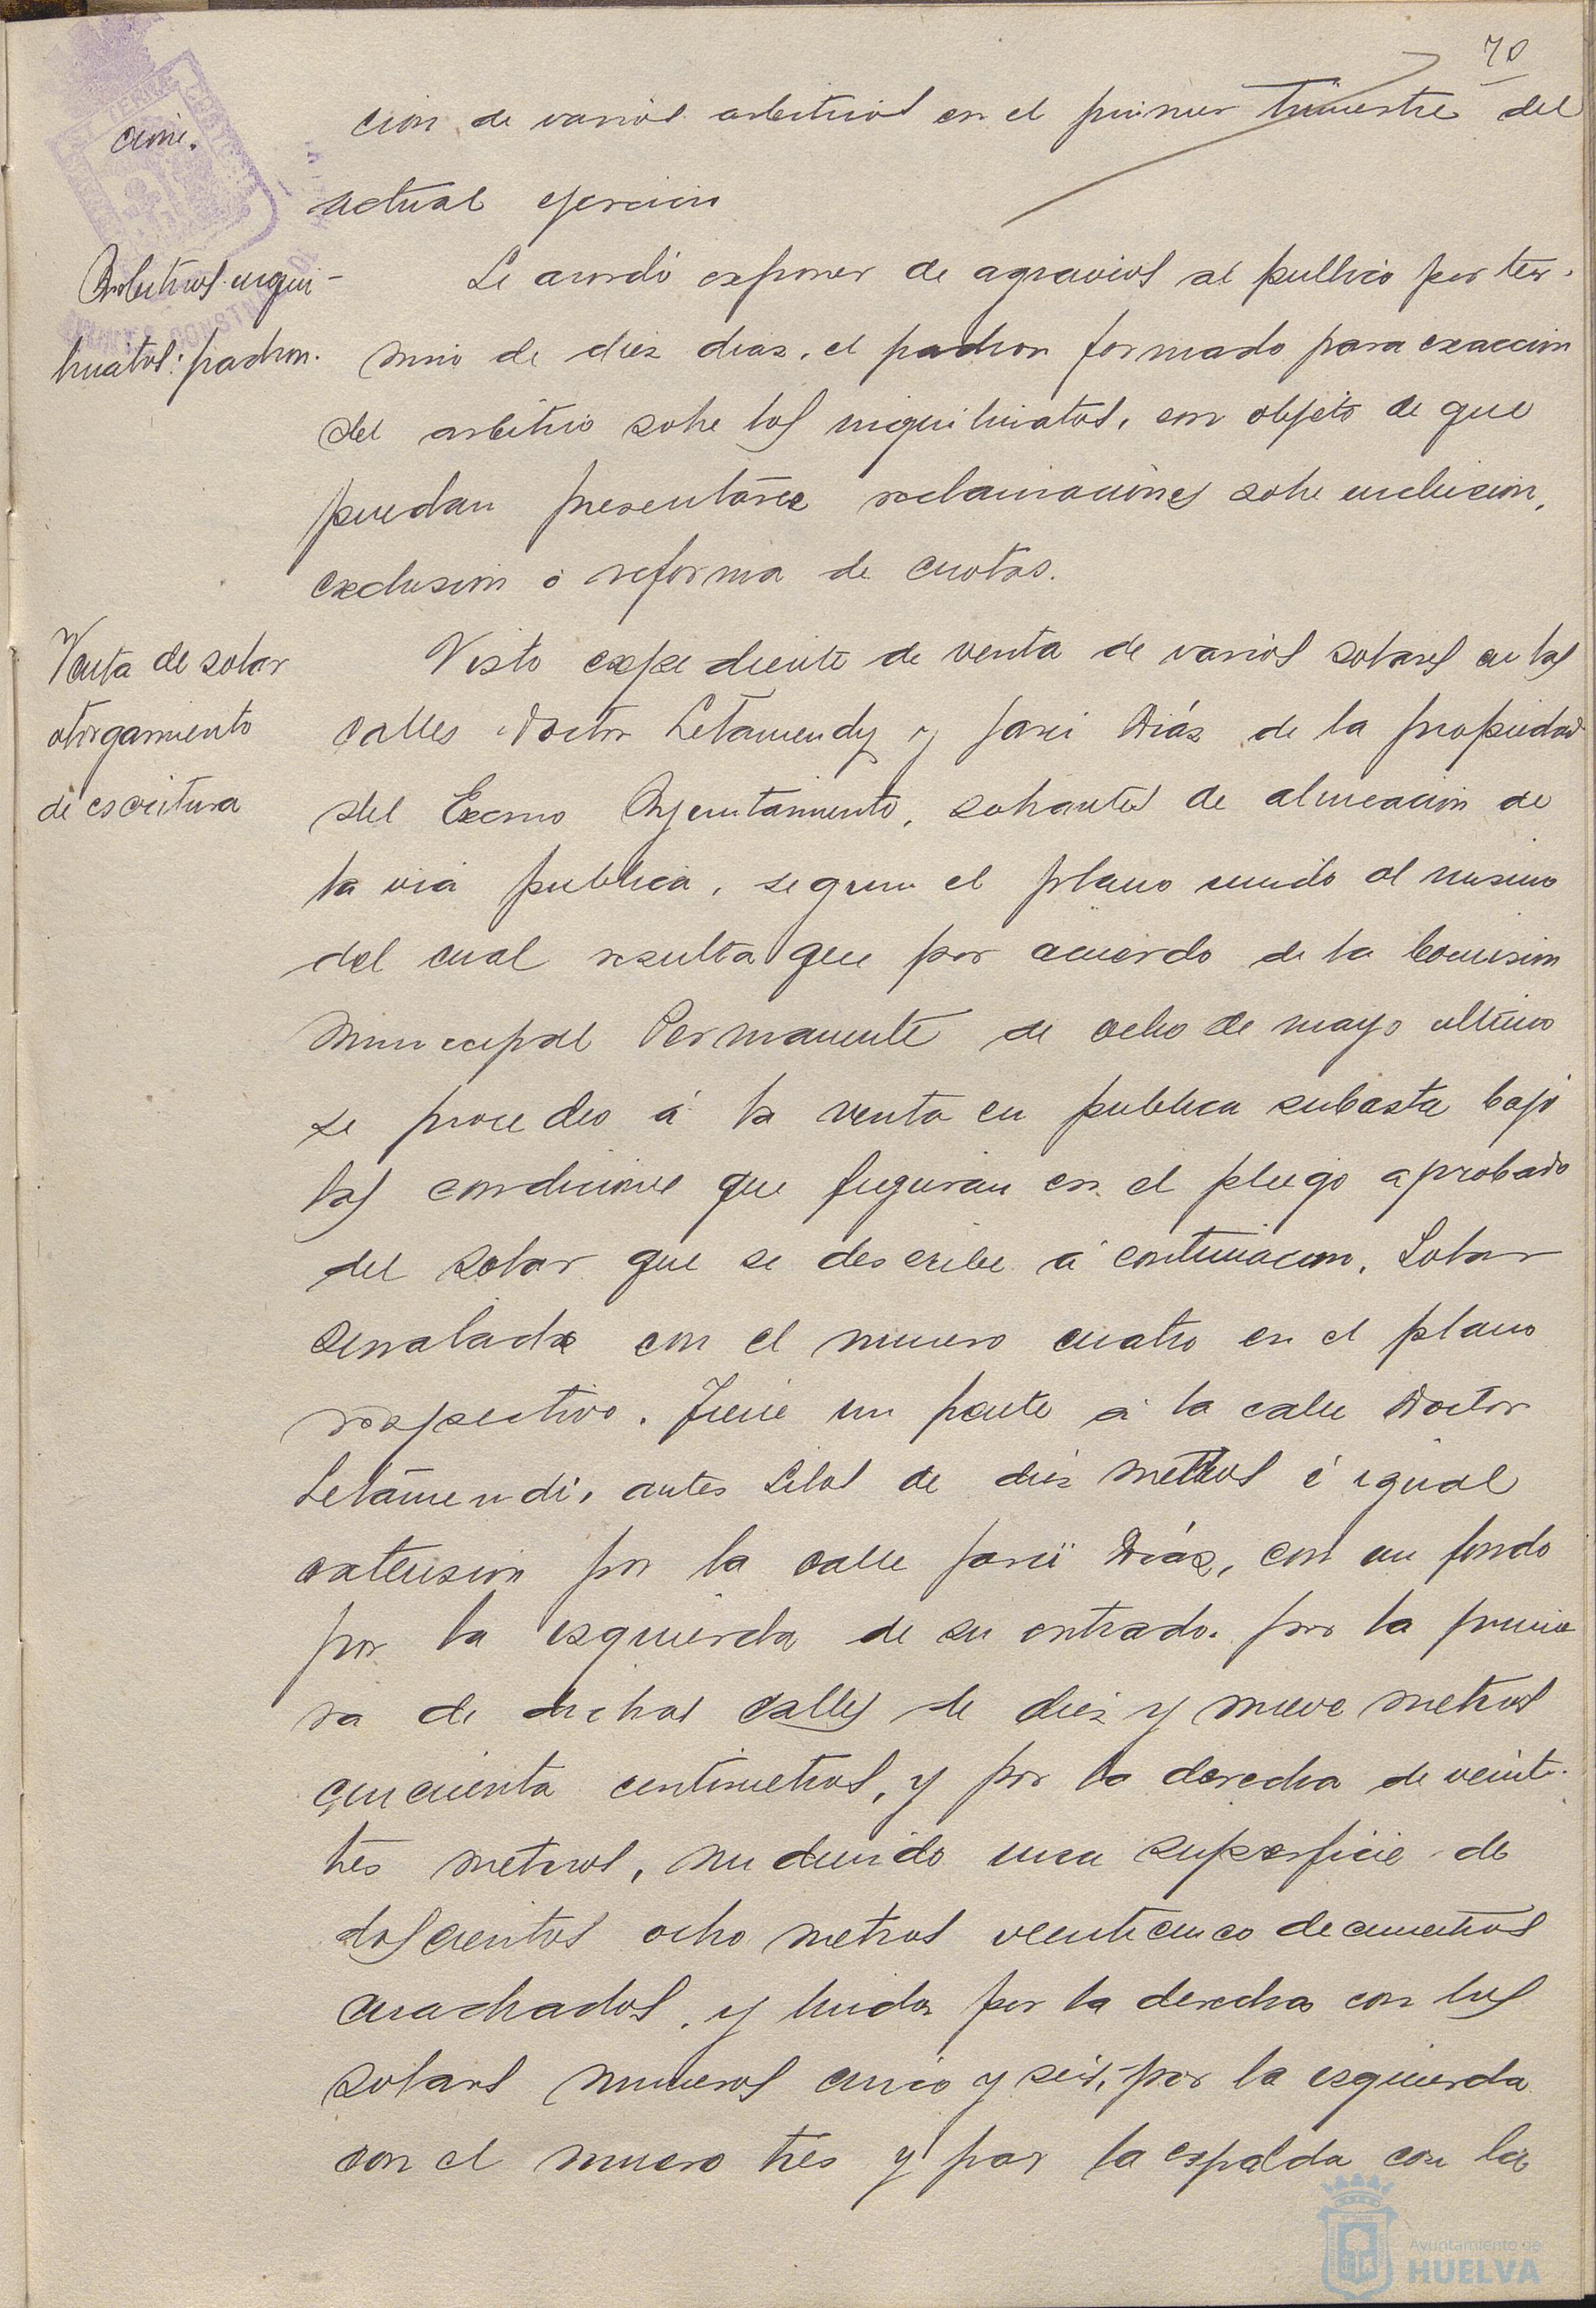 70
cion de varios arbitrios en el primer trimestre del
cion.
actual ejercicio
Arbitrios inqui-
linatos: padron.
Se acordó exponer de agravios al publico por ter-
mino de diez dias, el padron formado para exaccion
del arbitrio sobre los inquilinatos, con objeto de que
puedan presentarse reclamaciones sobre inclusion,
exclusion ó reforma de cuotas.
Venta de solar
otorgamiento
de escritura
Visto expediente de venta de varios solares en las
calles Doctor Letamendy y Díaz de la propiedad
del Excmo Ayuntamiento, sobrantes de alineacion de
la via publica, segun el plano unido al mismo
del cual resulta que por acuerdo de la Comision
Municipal Permanente de ocho de mayo ultimo
se procedio á la venta en publica subasta bajo
las condiciones que figuran en el pliego aprobado
del solar que se describe á continuacion. Solar
señalado con el numero cuatro en el plano
respectivo. Tiene un frente á la calle Doctor
Letamendi, antes Silos de diez metros é igual
extension por la calle Díaz, con un fondo
por la izquierda de su entrada por la prime
ra de dichas calles de diez y nueve metros
cincuenta centimetros, y por la derecha de veinti-
tres metros, midiendo una superficie de
doscientos ocho metros veinticinco decimetros
cuadrados, y linda por la derecha con los
solares numeros cinco y seis, por la izquierda
con el numero tres y por la espalda con la
Ayuntamiento de
HUELVA